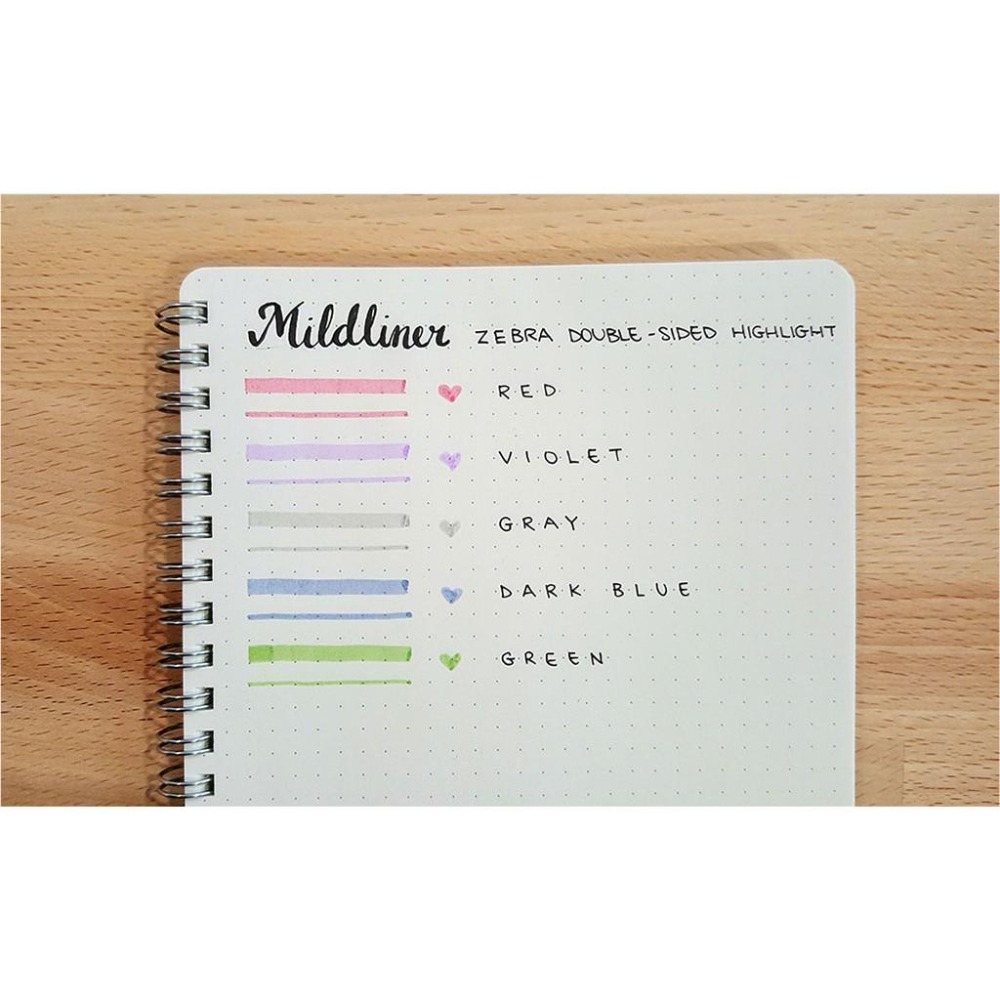 Mildliner ZEBRA DOUBLE-SIDED HIGHLIGHT
RED
VIOLET
GRAY
DARK BLUE
GREEN